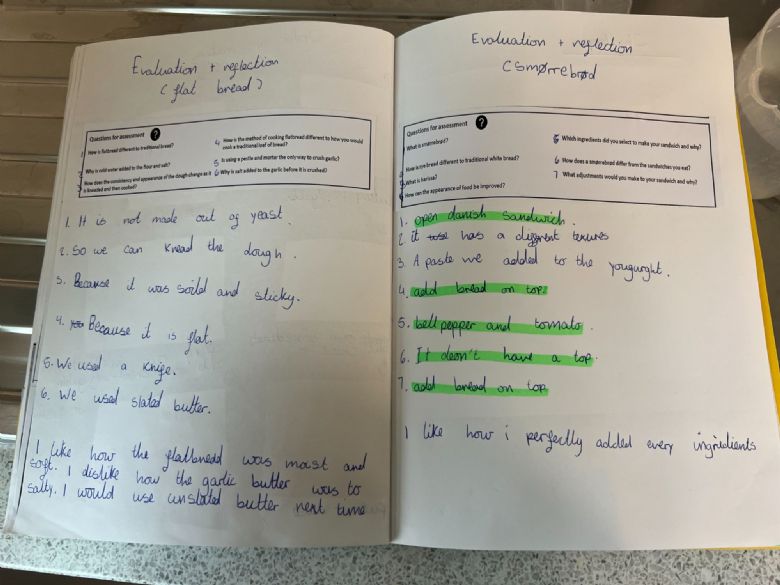 Evaluation + reflection
( flat bread )
Questions for assessment ?
1 How is flatbread different to traditional bread?
2 Why is cold water added to the flour and salt?
3 How does the consistency and appearance of the dough change as it is kneaded and then cooked?
4 How is the method of cooking flatbread different to how you would cook a traditional loaf of bread?
5 Is using a pestle and mortar the only way to crush garlic?
6 Why is salt added to the garlic before it is crushed?
1. It is not made out of yeast.
2. So we can knead the dough.
3. Because it was soild and sticky.
4. Because it is flat.
5. We used a knife.
6. We used slated butter.
I like how the flatbnedd was moist and
soft. I dislike how the garlic butter was to
salty. I would use unslated butter next time
Evaluation + reflection
( smørrebrød
Questions for assessment ?
1 What is smørrebrød?
How is rye bread different to traditional white bread?
3 What is harissa?
4 How can the appearance of food be improved?
5 Which ingredients did you select to make your sandwich and why?
6 How does a smørrebrød differ from the sandwiches you eat?
7 What adjustments would you make to your sandwich and why?
1. open danish sandwich.
2 it has a different
3. A paste we added to the yougurght.
4. add bread on top.
5. bell pepper and tomato.
6. It deon't have a top.
7. add bread on top
I like how i perfectly added every ingridients